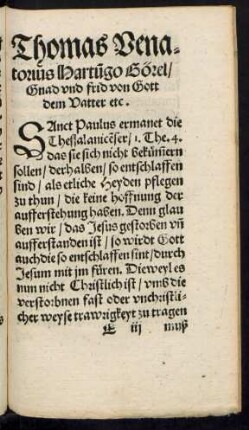 Thomas Vena-
torius Hartūgo Görel/
Gnad vnd frid von Gott
dem Vatter etc.
SAnct Paulus ermanet die
Thessalanicēser/1. The. 4.
das sie sich nicht bekūmern
sollen/derhalben/so entschlaffen
sind/als etliche Heyden pflegen
zu thun/die keine hoffnung der
aufferstehung haben. Denn glau
ben wir/das Jesus gestorben vn̄
aufferstanden ist/so wirdt Gott
auch die so entschlaffen sint/durch
Jesum mit jm füren. Dieweyl es
nun nicht Christlich ist/vmb die
verstorbnen fast oder vnchristli-
cher weyse trawrigkeyt zu tragen
E iij muß